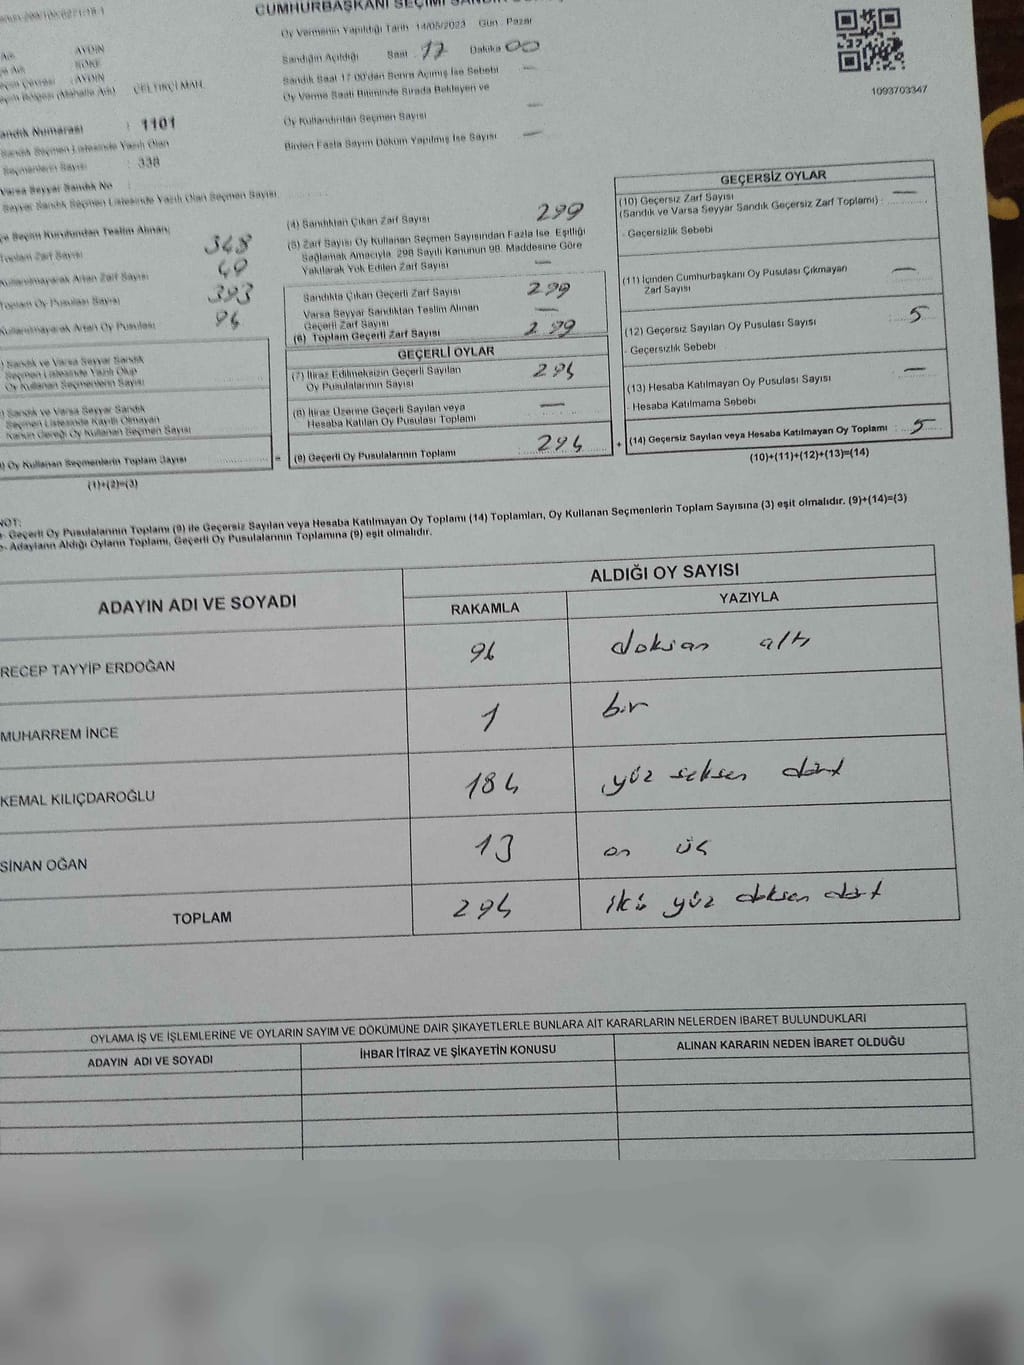 CUMHURBAŞKANI SEÇİMİ SANDIK
Oy Vermenin Yapıldığı Tarih 14/05/2023 Gün Pazar
Sandığın Açıldığı Saat 17 Dakika 00
Sandık Saat 17:00'dan Sonra Açılmış İse Sebebi —
Oy Verme Saati Bitiminde Sırada Bekleyen ve
Oy Kullandırılan Seçmen Sayısı —
Birden Fazla Sayım Döküm Yapılmış İse Sayısı —
1093703347
AYDIN
SÖKE
AYDIN
Seçim Bölgesi (Mahalle Adı) ÇELTİKÇİ MAH.
Sandık Numarası : 1101
Sandık Seçmen Listesinde Yazılı Olan
Seçmenlerin Sayısı : 338
Varsa Seyyar Sandık No
Seyyar Sandık Seçmen Listesinde Yazılı Olan Seçmen Sayısı
Seçim Kurulundan Teslim Alınan;
Toplam Zarf Sayısı 348
Kullanılmayarak Artan Zarf Sayısı 49
Toplam Oy Pusulası Sayısı 393
Kullanılmayarak Artan Oy Pusulası 94
Sandık ve Varsa Seyyar Sandık
Seçmen Listesinde Yazılı Olup
Oy Kullanan Seçmenlerin Sayısı
Sandık ve Varsa Seyyar Sandık
Seçmen Listesinde Kayıtlı Olmayan
Kanun Gereği Oy Kullanan Seçmen Sayısı
Oy Kullanan Seçmenlerin Toplam Sayısı =
(1)+(2)=(3)
(4) Sandıktan Çıkan Zarf Sayısı 299
(5) Zarf Sayısı Oy Kullanan Seçmen Sayısından Fazla İse, Eşitliği
Sağlamak Amacıyla, 298 Sayılı Kanunun 98. Maddesine Göre
Yakılarak Yok Edilen Zarf Sayısı —
Sandıkta Çıkan Geçerli Zarf Sayısı 299
Varsa Seyyar Sandıktan Teslim Alınan
Geçerli Zarf Sayısı —
(6) Toplam Geçerli Zarf Sayısı 299
GEÇERLİ OYLAR
(7) İtiraz Edilmeksizin Geçerli Sayılan
Oy Pusulalarının Sayısı 294
(8) İtiraz Üzerine Geçerli Sayılan veya
Hesaba Katılan Oy Pusulası Toplamı —
(9) Geçerli Oy Pusulalarının Toplamı : 294 +
GEÇERSİZ OYLAR
(10) Geçersiz Zarf Sayısı
(Sandık ve Varsa Seyyar Sandık Geçersiz Zarf Toplamı) : —
- Geçersizlik Sebebi
(11) İçinden Cumhurbaşkanı Oy Pusulası Çıkmayan
Zarf Sayısı —
(12) Geçersiz Sayılan Oy Pusulası Sayısı 5
- Geçersizlik Sebebi
(13) Hesaba Katılmayan Oy Pusulası Sayısı —
- Hesaba Katılmama Sebebi
(14) Geçersiz Sayılan veya Hesaba Katılmayan Oy Toplamı : 5
(10)+(11)+(12)+(13)=(14)
NOT:
- Geçerli Oy Pusulalarının Toplamı (9) ile Geçersiz Sayılan veya Hesaba Katılmayan Oy Toplamı (14) Toplamları, Oy Kullanan Seçmenlerin Toplam Sayısına (3) eşit olmalıdır. (9)+(14)=(3)
- Adayların Aldığı Oyların Toplamı, Geçerli Oy Pusulalarının Toplamına (9) eşit olmalıdır.
ADAYIN ADI VE SOYADI
ALDIĞI OY SAYISI
RAKAMLA YAZIYLA
RECEP TAYYİP ERDOĞAN 96 doksan altı
MUHARREM İNCE 1 bir
KEMAL KILIÇDAROĞLU 184 yüz seksen dört
SİNAN OĞAN 13 on üç
TOPLAM 294 iki yüz doksan dört
OYLAMA İŞ VE İŞLEMLERİNE VE OYLARIN SAYIM VE DÖKÜMÜNE DAİR ŞİKAYETLERLE BUNLARA AİT KARARLARIN NELERDEN İBARET BULUNDUKLARI
ADAYIN ADI VE SOYADI İHBAR İTİRAZ VE ŞİKAYETİN KONUSU ALINAN KARARIN NEDEN İBARET OLDUĞU